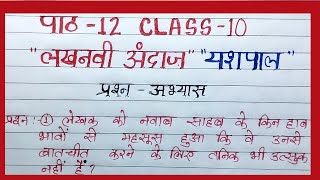 पाठ -12 CLASS-10
"लखनवी अंदाज" "यशपाल"
प्रश्न - अभ्यास
प्रश्न:-① लेखक को नवाब साहब के किन हाव
भावों से महसूस हुआ कि वे उनसे
बातचीत करने के लिए तनिक भी उत्सुक
नहीं हैं?